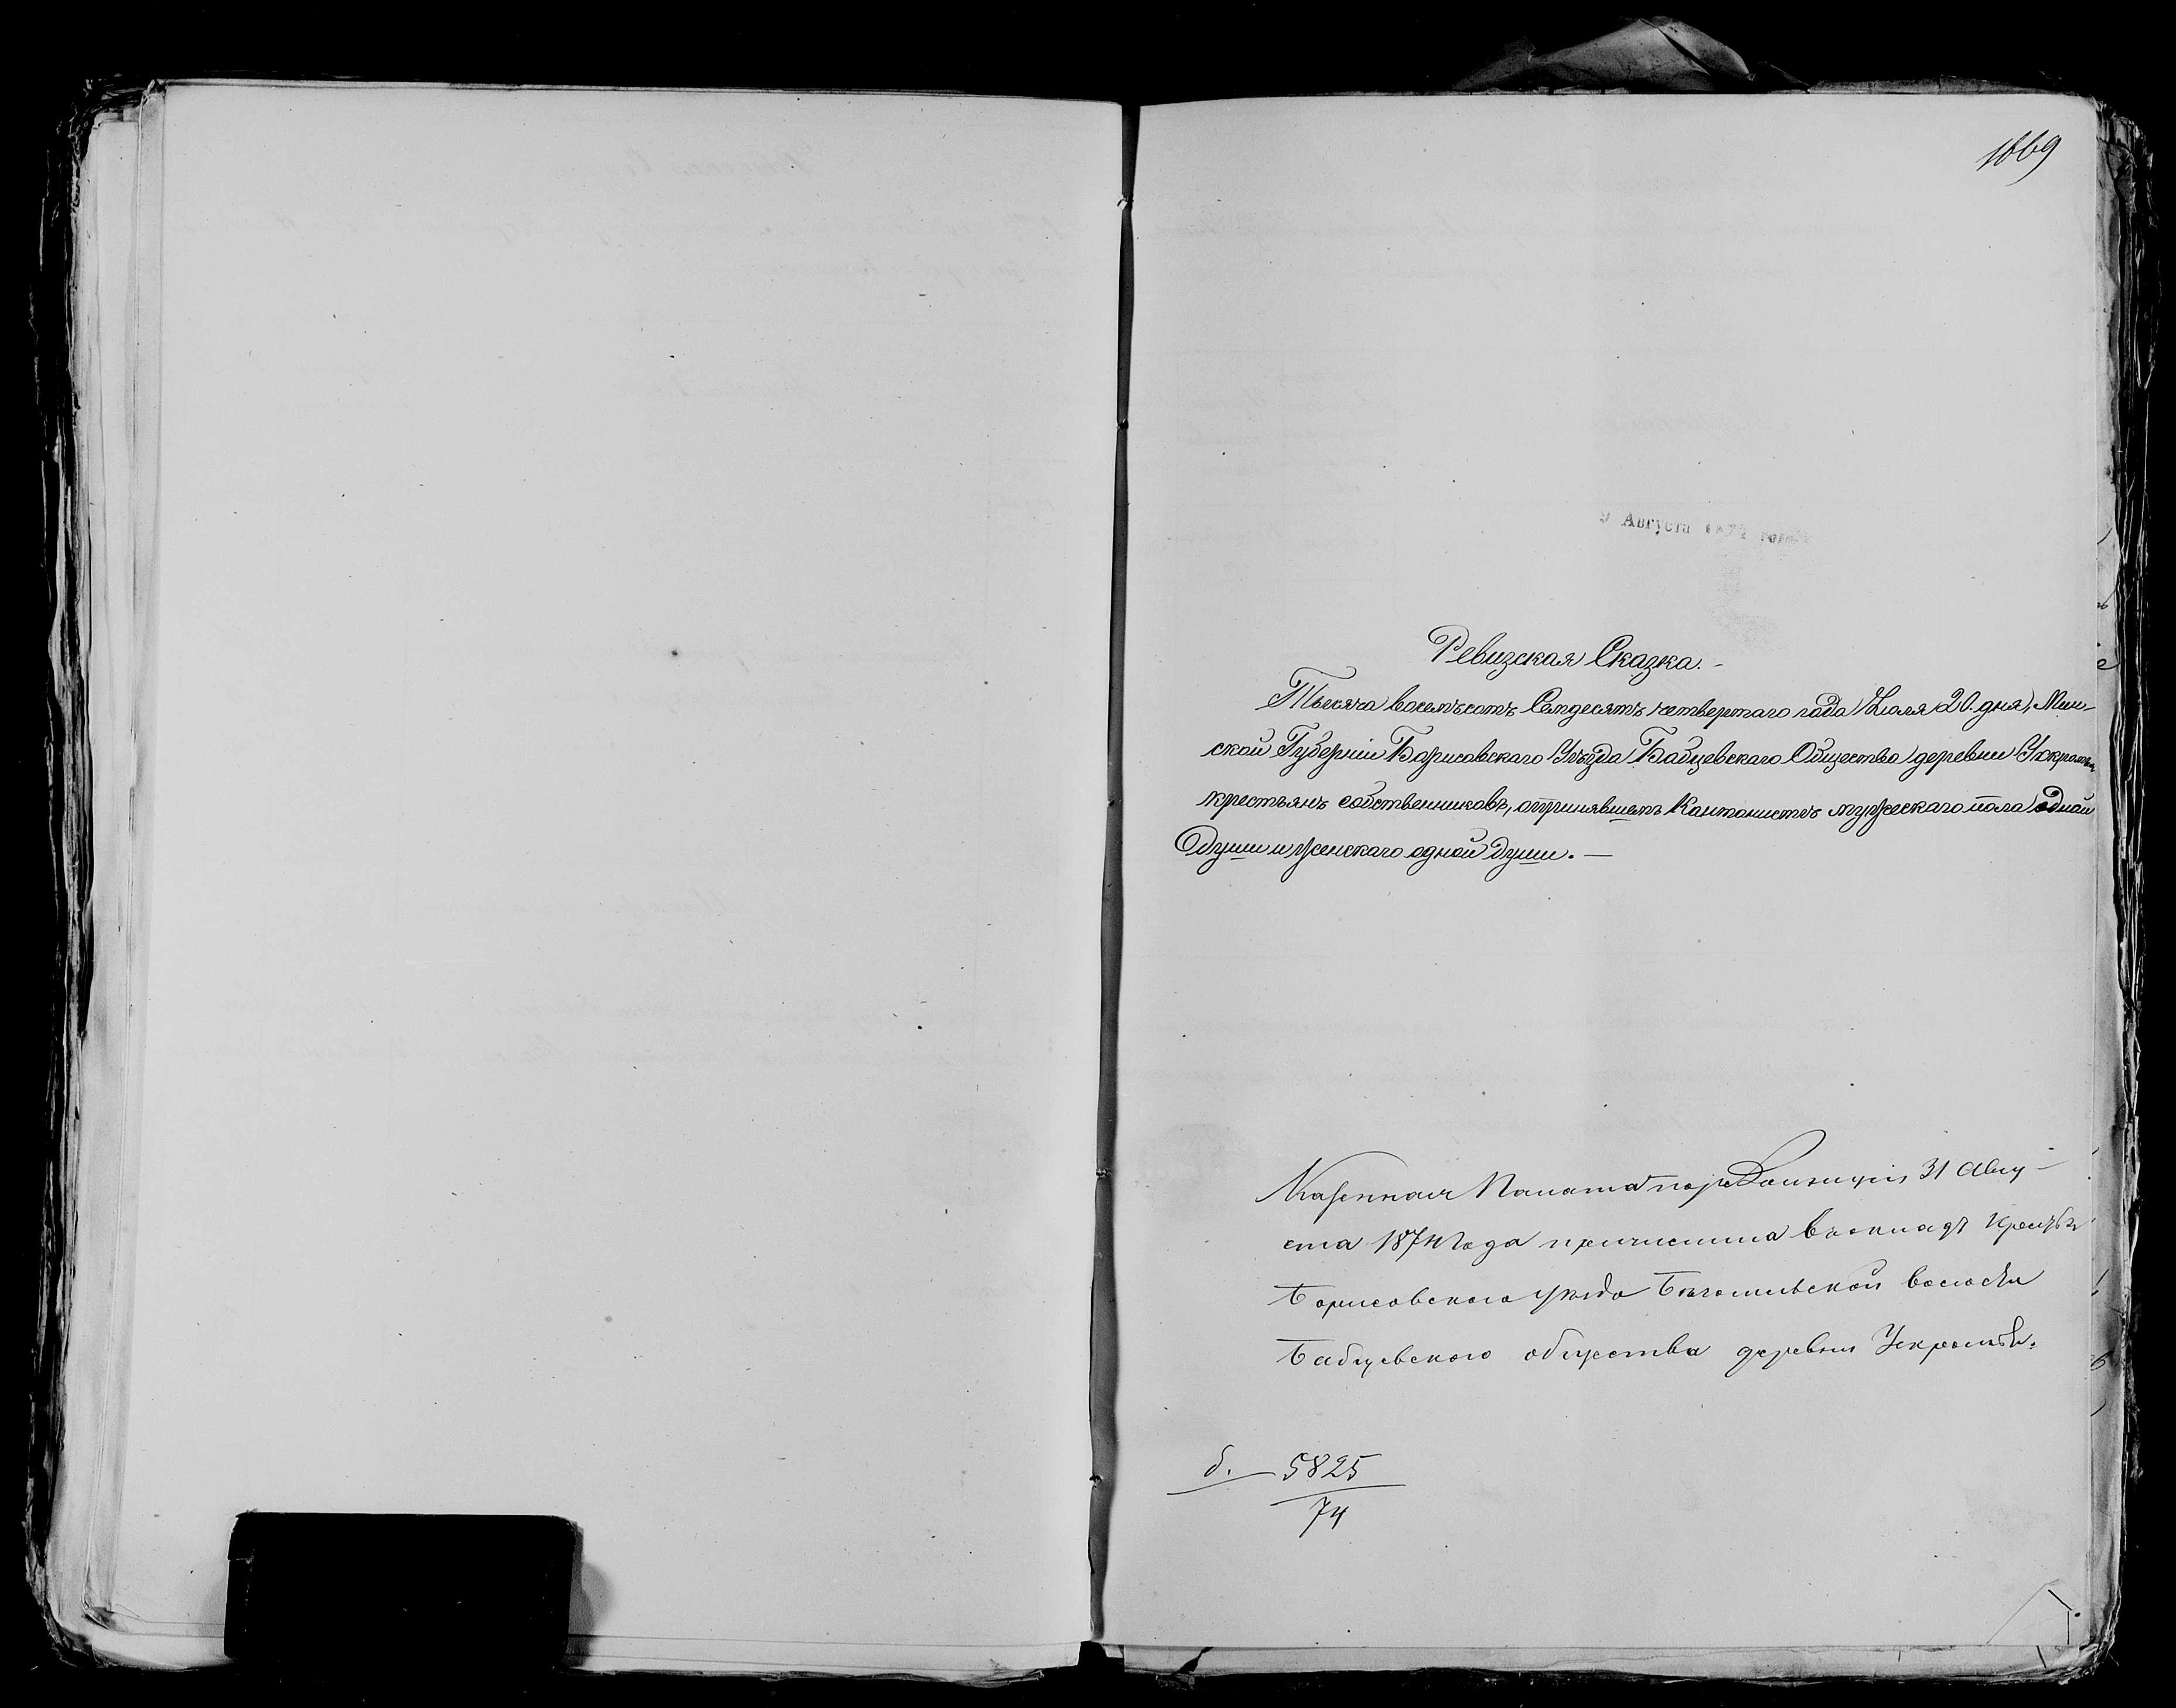 1669
9 Августа 1874 года
Ревизская Сказка.-
Тысяча восемьсотъ Семдесятъ четвертаго года Іюля 20. дня, Мин-
ской Губерніи Борисовскаго Уѣзда Бабцевскаго Общества деревни
крестьянъ собственниковъ, Кантонистъ мужескаго пола одной
Души и женскаго одной души. —
Казенная Палата 31 Авгу-
ста 1874 года причислила въ окладъ
Борисовского уѣзда Бѣгомльской волости
Бабцевского общества деревни
б. — 5825
74